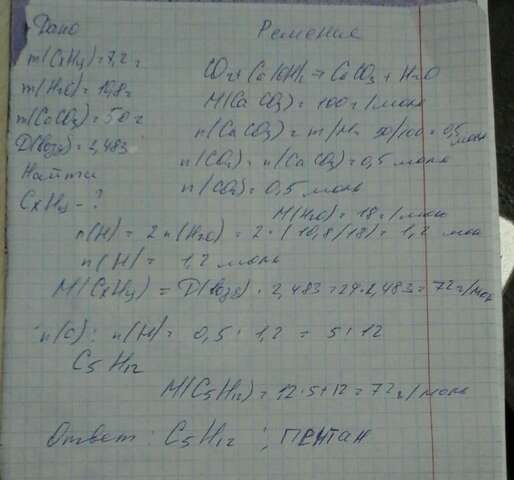 Дано
Решение
m(CxHy)=7,2 г
m(H2O)=10,8г
m(CaCO3)=50 г
D(возд)=2,483
Найти
CxHy - ?
CO2+Ca(OH)2=CaCO3+H2O
M(CaCO3)=100г/моль
n(CaCO3)=m/M= 50/100=0,5 моль
n(CO2)=n(CaCO3)=0,5 моль
n(CO2)=0,5 моль
M(H2O)=18г/моль
n(H)= 2 n(H2O)=2·(10,8/18)=1,2 мол
n(H)= 1,2 моль
M(CxHy)= D(возд)·2,483=29·2,483=72г/мол
n(C): n(H)= 0,5:1,2 = 5:12
C5H12
M(C5H12)=12·5+12=72г/моль
Ответ: C5H12; ПЕНТАН